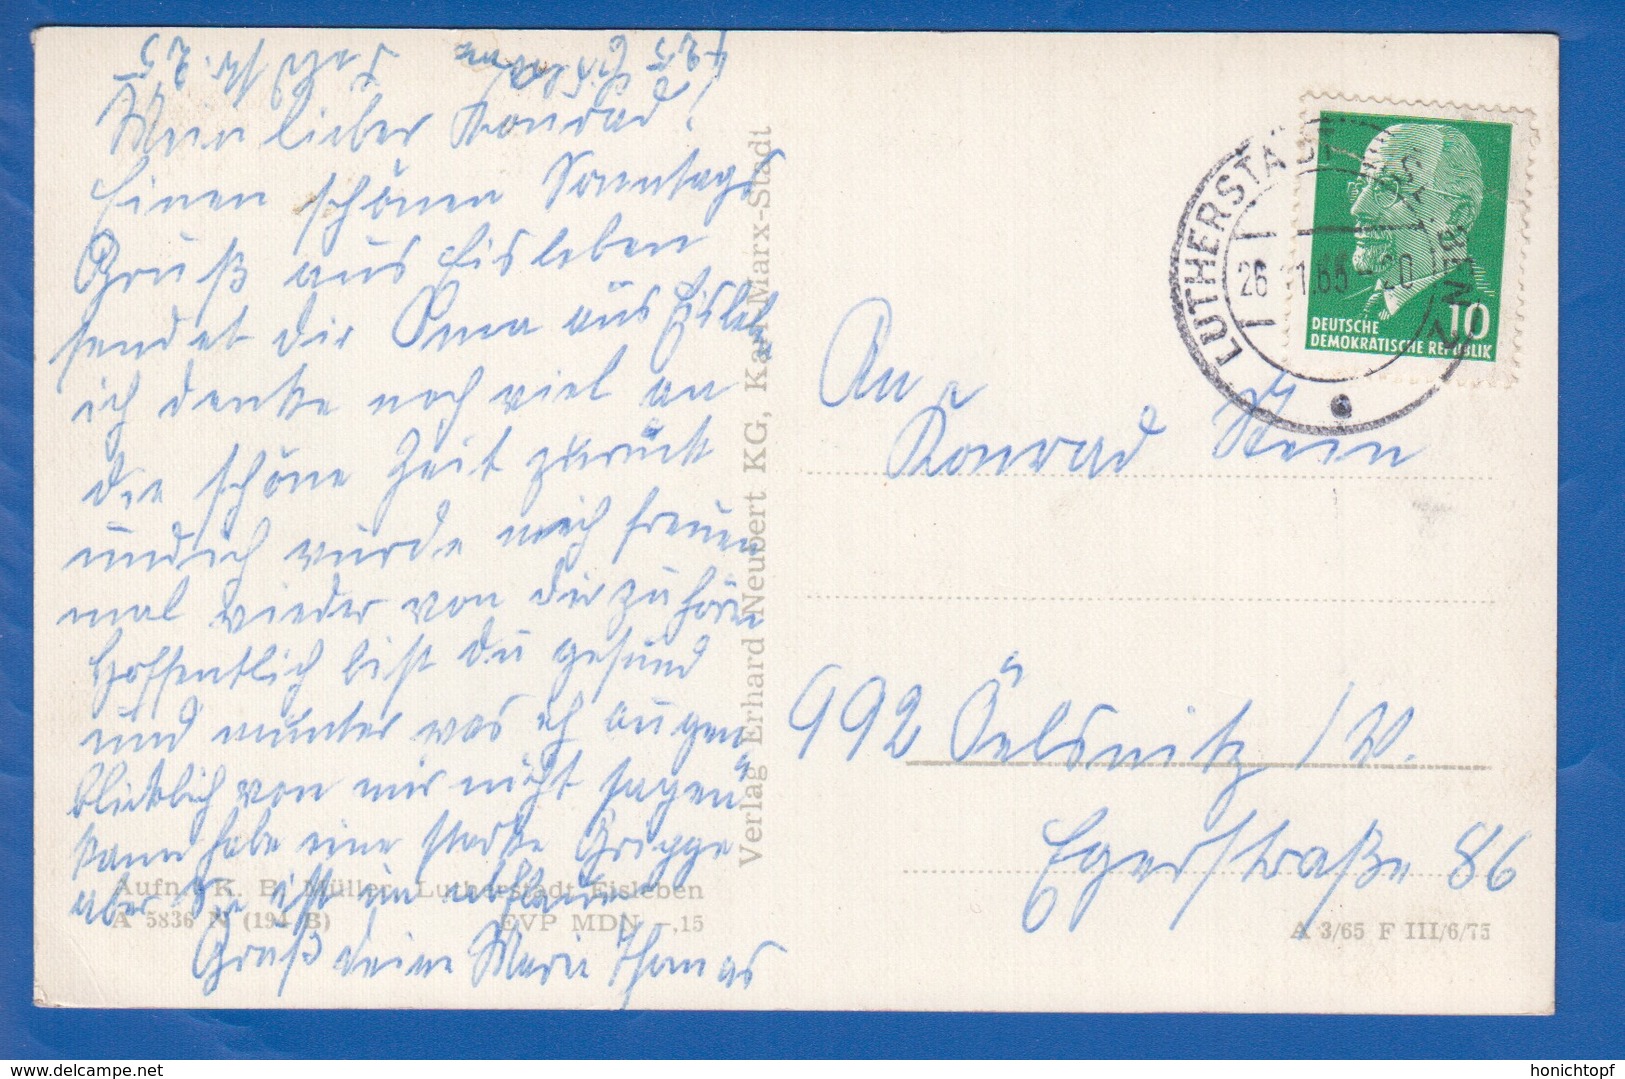 425 Eisleben
Mein lieber Konrad!
Einen schönen Sonntags
Gruß aus Eisleben
sendet die Oma aus Eisleb
ich denke noch viel an
die schöne Zeit zurück
und ich würde mich freuen
mal wieder von dir zu hören
Hoffentlich bist du gesund
und munter was ich augen
blicklich von mir nicht sagen
kann habe eine starke Grippe
aber sie ist im abflauen
Gruß deine Marie Thomas
Aufn.: K. B. Müller, Lutherstadt Eisleben
A 5836 N (194 B) EVP MDN -,15
Verlag Erhard Neubert KG, Karl-Marx-Stadt
LUTHERSTADT EISLEBEN
26.11.65-20
10
DEUTSCHE
DEMOKRATISCHE REPUBLIK
An
Konrad Stein
992 Oelsnitz /V.
Egerstraße 86
A 3/65 F III/6/75
honichtopf